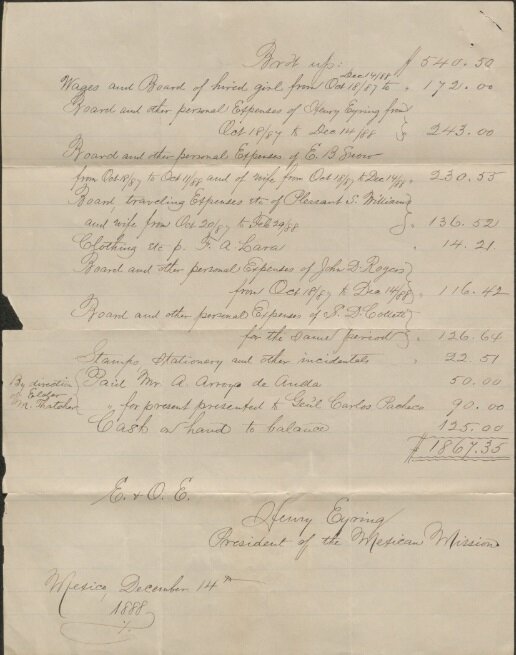 Bro't up: $ 540.50
Dec 14/88
Wages and Board of hired girl from Oct 18/87 to " 172.00
Board and other personal Expenses of Henry Eyring from
Oct 18/87 to Dec 14/88 } " 243.00
Board and other personal Expenses of E. B. Snow
from Oct 18/87 to Oct 11/88 and of wife from Oct 18/87 to Dec 14/88 " 230.55
Board traveling Expenses etc of Pleasant S. Williams
and wife from Oct 20/87 to Feb 29/88 } " 136.52
Clothing etc p. F. A. Lara " 14.21
Board and other personal Expenses of John D. Rogers
from Oct 18/87 to Dec 14/88 } " 116.42
Board and other personal Expenses of S. D. Collett
for the same period } " 126.64
Stamps Stationery and other incidentals " 22.51
By direction
of Elder
M. Thatcher
Paid Mr. A. Arroyo de Anda 50.00
" for present presented to Genl Carlos Pacheco 90.00
Cash on hand to balance 125.00
$ 1867.35
E. & O. E.
Henry Eyring
President of the Mexican Mission
Mexico, December 14th
1888